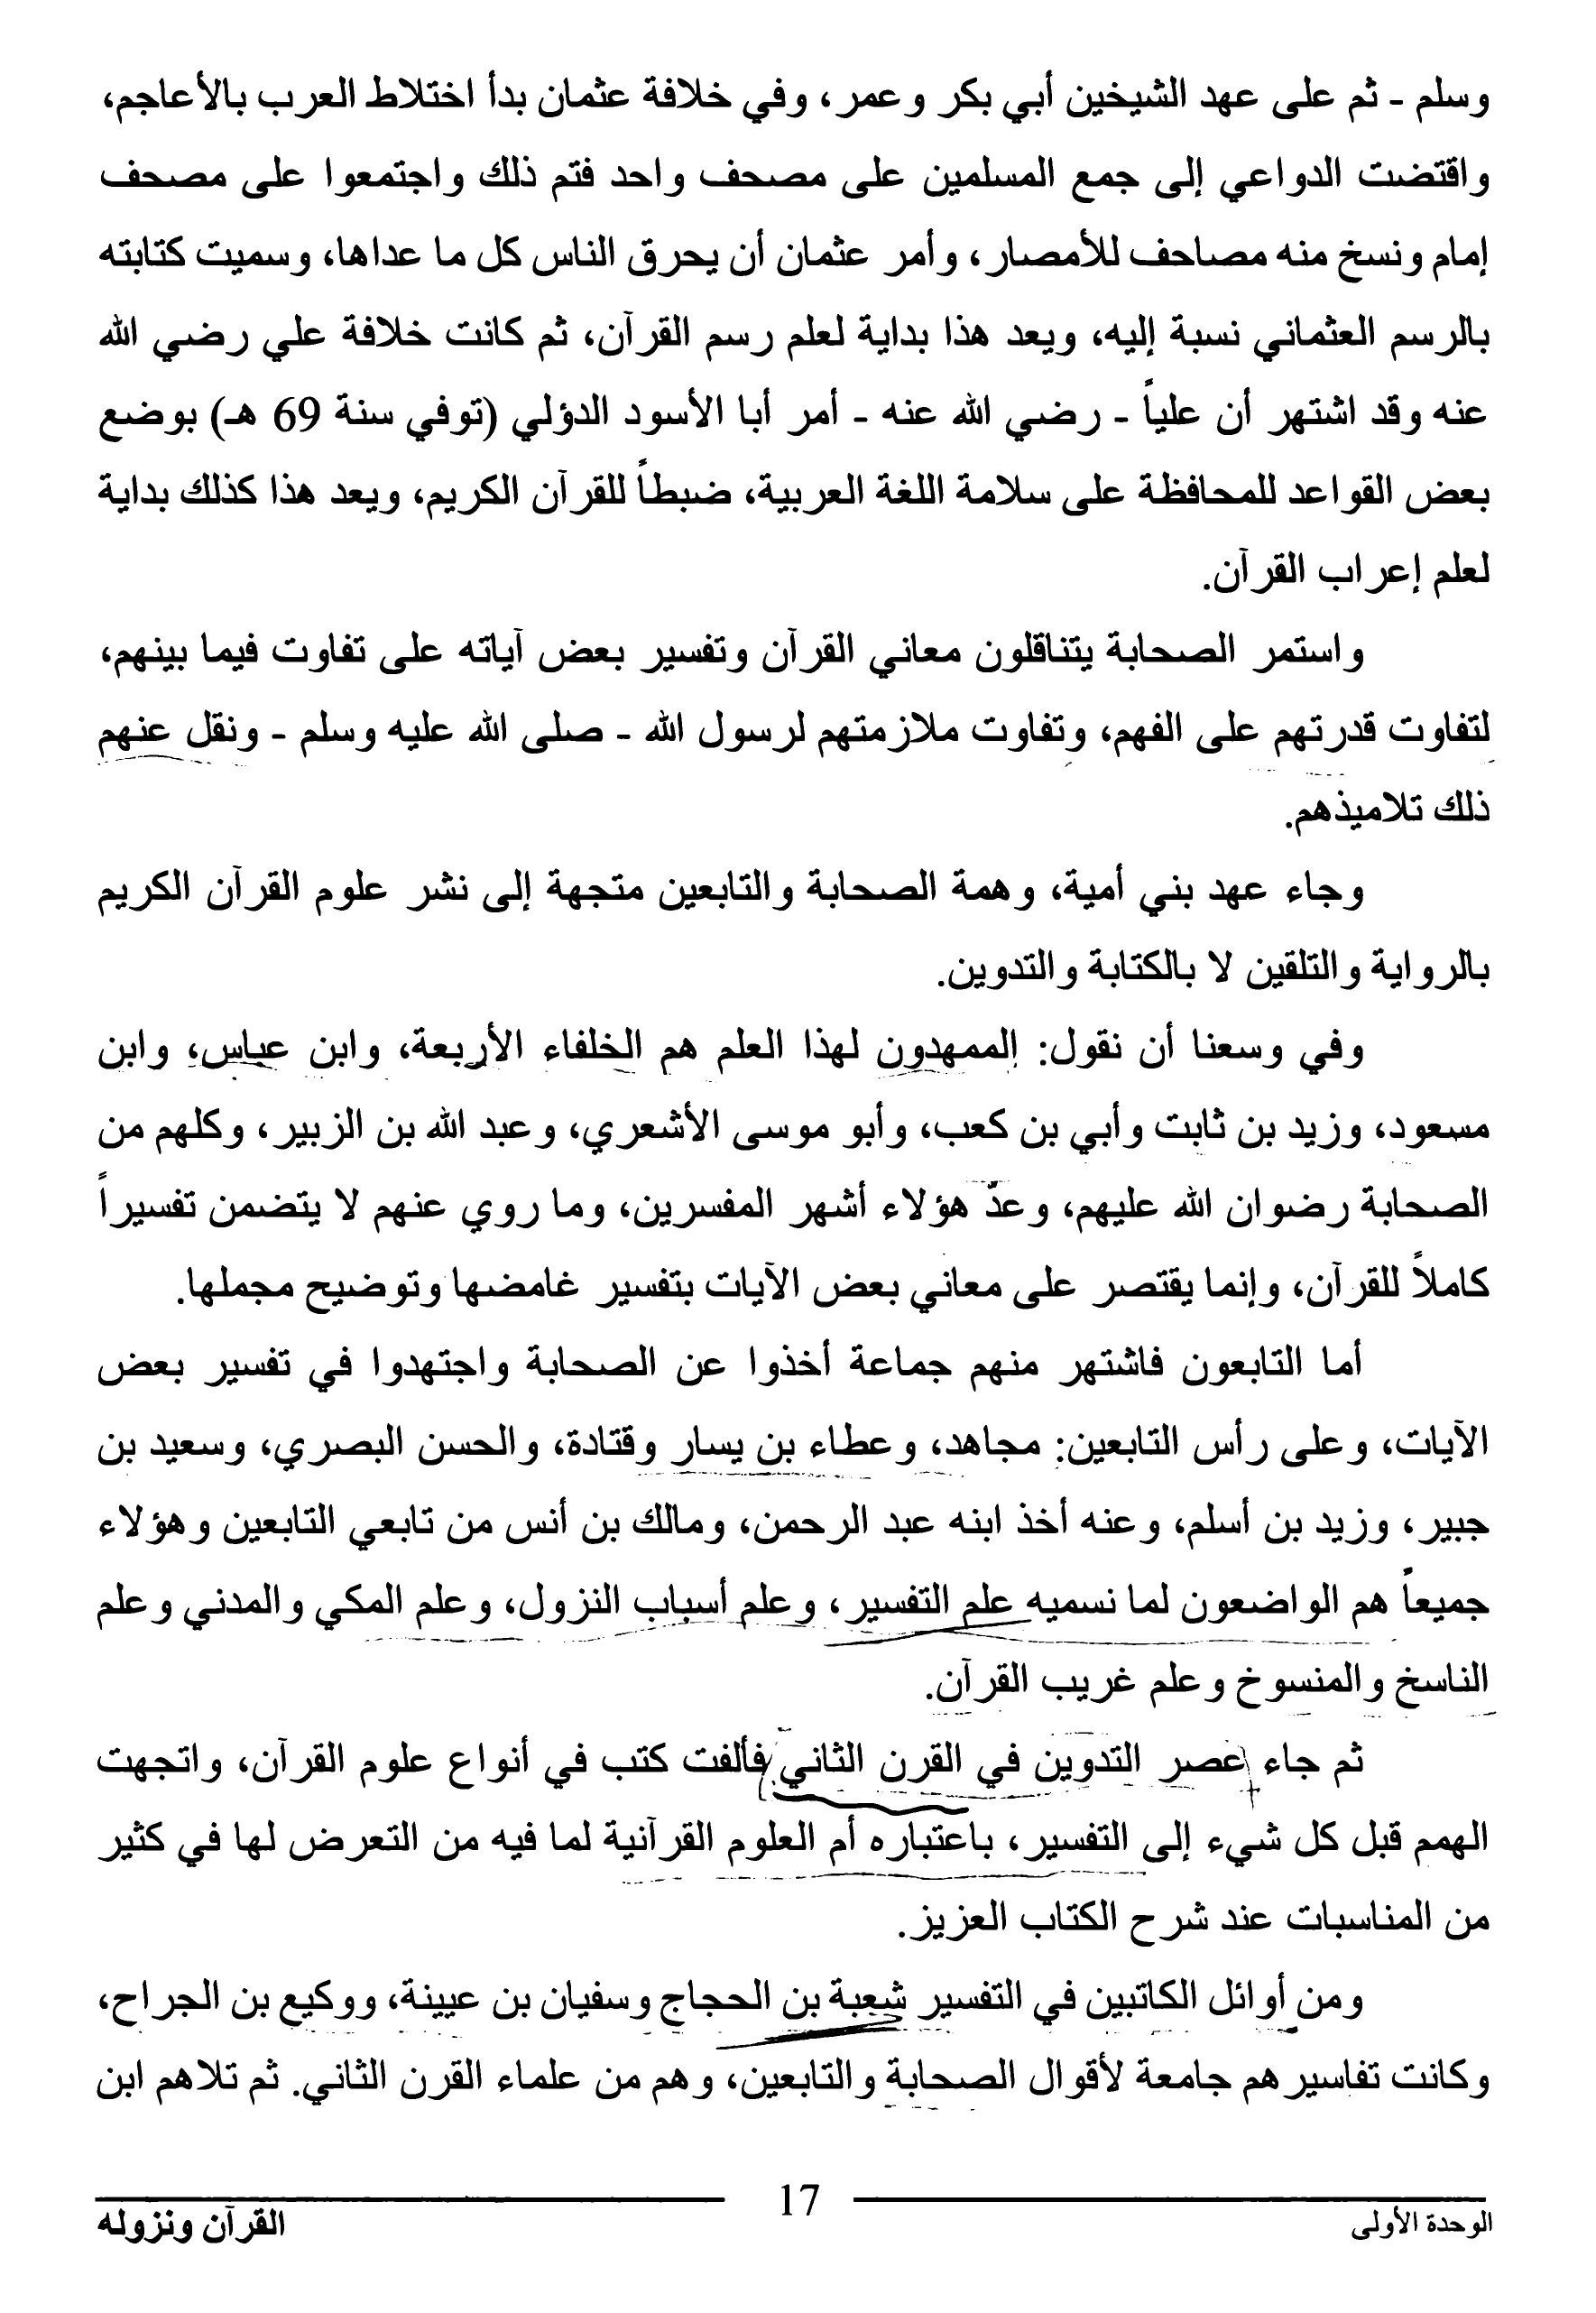 وسلم - ثم على عهد الشيخين أبي بكر وعمر، وفي خلافة عثمان بدأ اختلاط العرب بالأعاجم،
واقتضت الدواعي إلى جمع المسلمين على مصحف واحد فتم ذلك واجتمعوا على مصحف
إمام ونسخ منه مصاحف للأمصار، وأمر عثمان أن يحرق الناس كل ما عداها، وسميت كتابته
بالرسم العثماني نسبة إليه، ويعد هذا بداية لعلم رسم القرآن، ثم كانت خلافة علي رضي الله
عنه وقد اشتهر أن علياً - رضي الله عنه - أمر أبا الأسود الدؤلي (توفي سنة 69 هـ) بوضع
بعض القواعد للمحافظة على سلامة اللغة العربية، ضبطاً للقرآن الكريم، ويعد هذا كذلك بداية
لعلم إعراب القرآن.
واستمر الصحابة يتناقلون معاني القرآن وتفسير بعض آياته على تفاوت فيما بينهم،
لتفاوت قدرتهم على الفهم، وتفاوت ملازمتهم لرسول الله - صلى الله عليه وسلم - ونقل عنهم
ذلك تلاميذهم.
وجاء عهد بني أمية، وهمة الصحابة والتابعين متجهة إلى نشر علوم القرآن الكريم
بالرواية والتلقين لا بالكتابة والتدوين.
وفي وسعنا أن نقول: الممهدون لهذا العلم هم الخلفاء الأربعة، وابن عباس، وابن
مسعود، وزيد بن ثابت وأبي بن كعب، وأبو موسى الأشعري، وعبد الله بن الزبير، وكلهم من
الصحابة رضوان الله عليهم، وعدّ هؤلاء أشهر المفسرين، وما روي عنهم لا يتضمن تفسيراً
كاملاً للقرآن، وإنما يقتصر على معاني بعض الآيات بتفسير غامضها وتوضيح مجملها.
أما التابعون فاشتهر منهم جماعة أخذوا عن الصحابة واجتهدوا في تفسير بعض
الآيات، وعلى رأس التابعين: مجاهد، وعطاء بن يسار وقتادة، والحسن البصري، وسعيد بن
جبير، وزيد بن أسلم، وعنه أخذ ابنه عبد الرحمن، ومالك بن أنس من تابعي التابعين وهؤلاء
جميعاً هم الواضعون لما نسميه علم التفسير، وعلم أسباب النزول، وعلم المكي والمدني وعلم
الناسخ والمنسوخ وعلم غريب القرآن.
ثم جاء عصر التدوين في القرن الثاني فألفت كتب في أنواع علوم القرآن، واتجهت
الهمم قبل كل شيء إلى التفسير، باعتباره أم العلوم القرآنية لما فيه من التعرض لها في كثير
من المناسبات عند شرح الكتاب العزيز.
ومن أوائل الكاتبين في التفسير شعبة بن الحجاج وسفيان بن عيينة، ووكيع بن الجراح،
وكانت تفاسيرهم جامعة لأقوال الصحابة والتابعين، وهم من علماء القرن الثاني. ثم تلاهم ابن
17
الوحدة الأولى
القرآن ونزوله